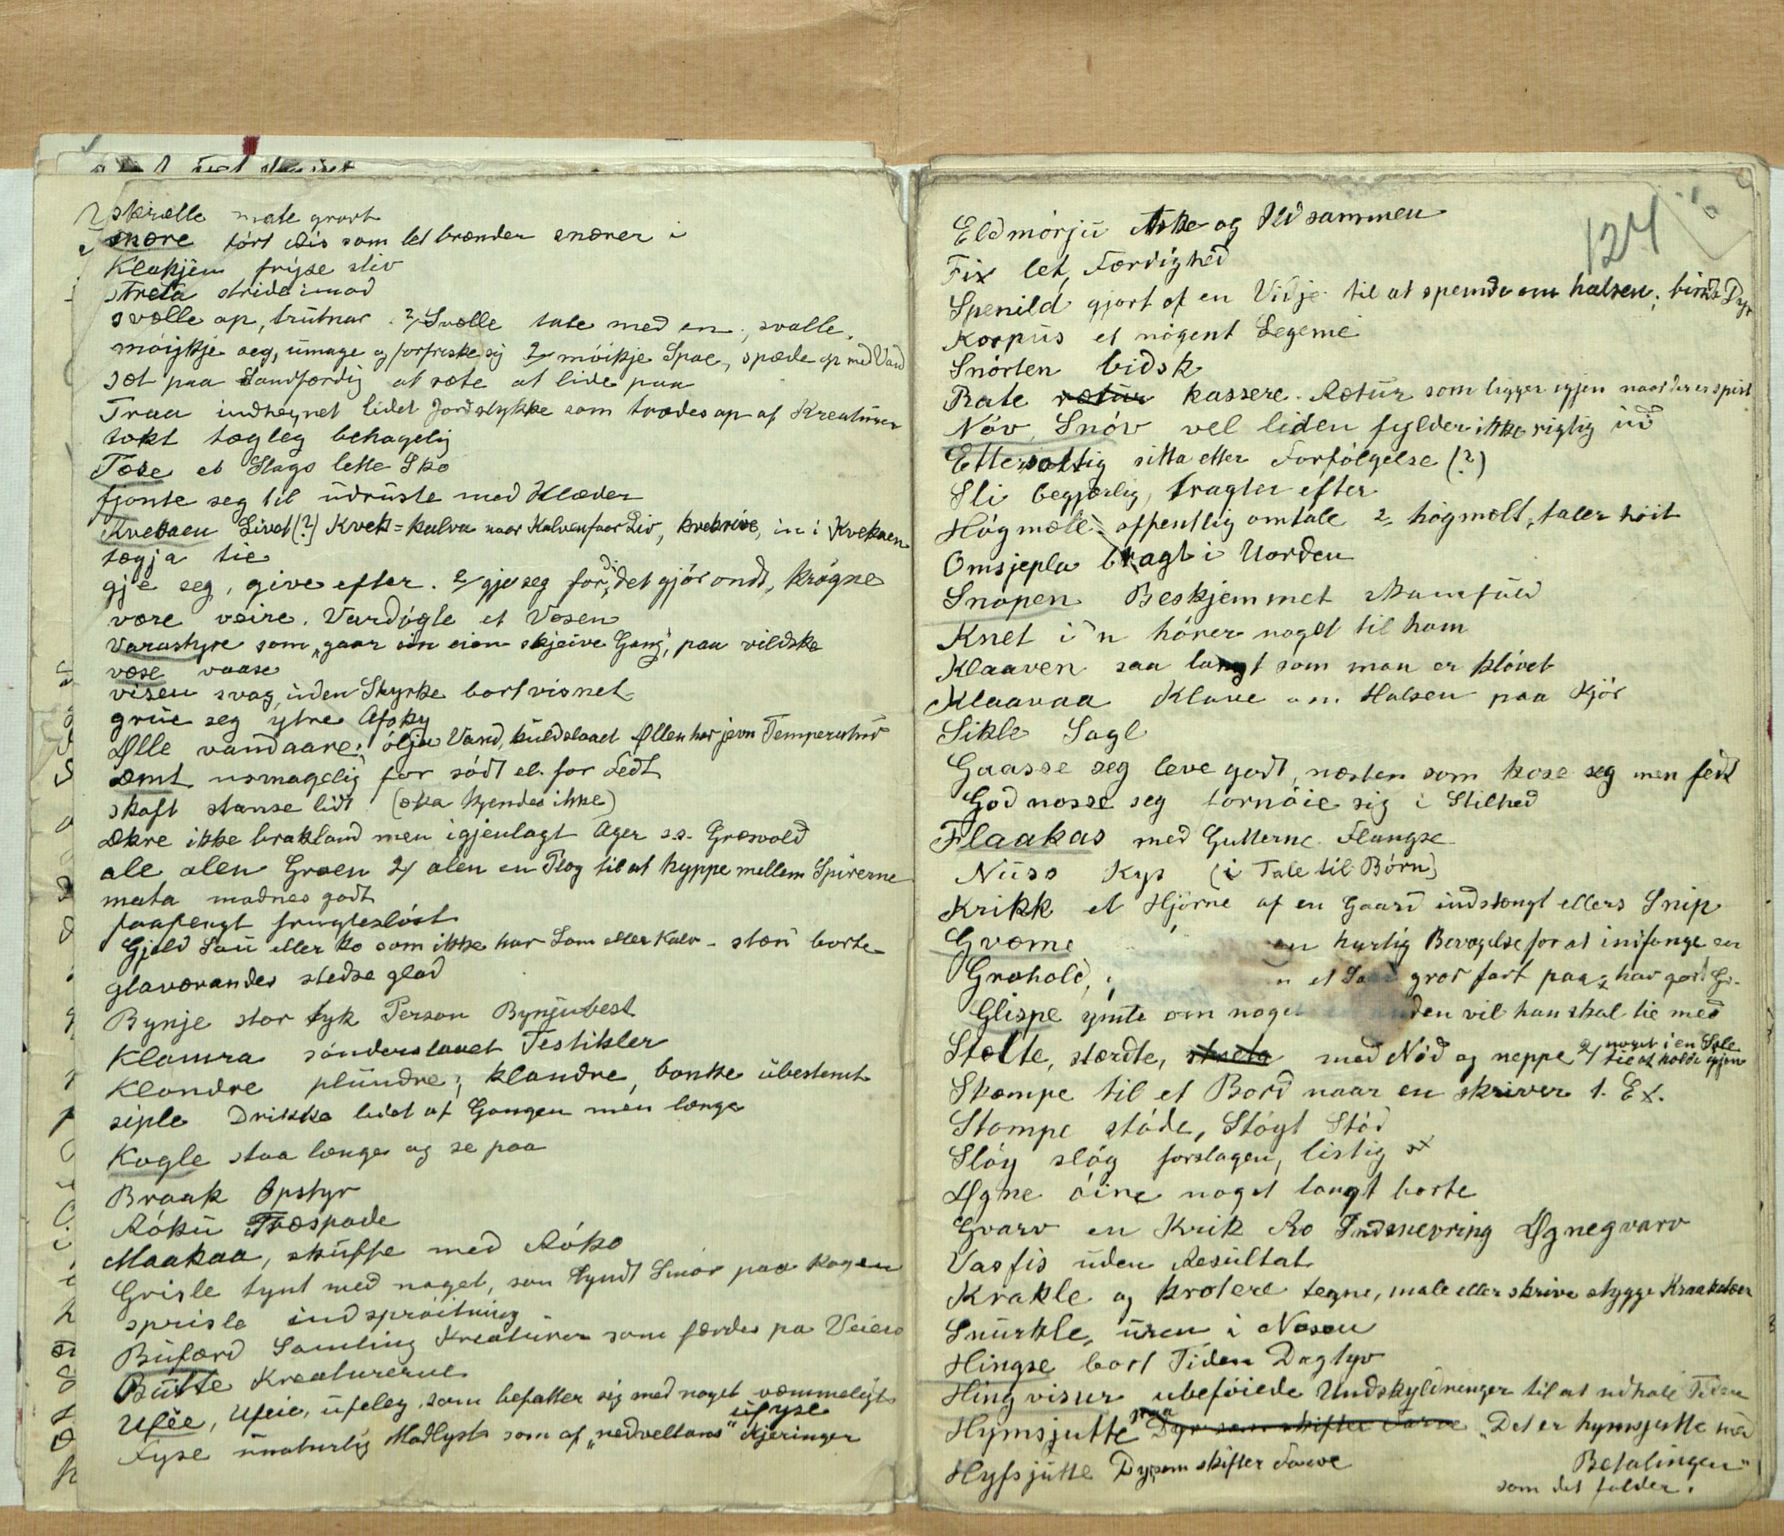 skrælle male grovt
snære tørt Ris som let brænder snærer i
Klakjen fryse stiv
streta stride imod
svælle op, trutnar. 2/ Svælle tale med en, svalle
møykje seg, umage og forfriske sig 2/ møikje Spae, spæde op med Vand
sæt paa Handfærdig at sæte at lide paa
Traa indhegnet lidet Jordstykke som trædes op af Kreaturer
tokt tægleg behagelig
Tøse et Slags lette Sko
fjonte seg til udruste med Klæder
Kvekaen Livet (?) Kvek = kalva naar Kalven faar Liv, kvekrive, in i Kvekaen
tægja tie
gje seg, give efter. 2/ gje seg fordi, det gjør ondt, krøgne
være veire. Vardøgle et Væsen
Varastyre som „gaar sin eien skjeive Gang", paa vildske
væse vaase
visen svag, uden Styrke bortvisnet
grue seg ytre Afsky
Ølle vandaare; ølja Vand, kuldslaaet Øllen har jevn Temperatur
æmt usmagelig for sødt el. for Fedt
skaft stanse lidt (æka kjendes ikke)
Ækre ikke brakland men igjenlagt Ager s.s. Græsvold
ale alen Groen 2/ alen en Plog til at hyppe mellem Spirerne
mata madnes godt
faafengt frugtesløst
Gjeld Sau eller Ko som ikke har Lam eller Kalv - stæn borte
glaværandes stedse glad
Bynje stor tyk Person Bynjubest
Klamra sønderslaaet Testikler
Klandre plundre; klandre, banke ubestemt
siple Drikke lidet af Gangen men længe
Kogle staa længe og se paa
Braak Opstyr
Røku Træspade
Maakaa, skuffe med Røko
Grisle tynt med noget, som tyndt Smør paa Kagen
sprisle indsprøitning
Bufærd Samling Kreaturer som færdes pa Veien
Butte Kreaturerne
Ufêe, Ufeie, ufeleg, som befatter sig med noget væmmeligt
ufyse
Fyse unaturlig Madlyst som af „nedveltans" Kjeringer
124
Eldmørju Aske og Ild sammen
Fix let, Færdighed
Spenild gjort af en Vidje til at spende om halsen, binde Dyr
Korpus et nøgent Legeme
Snørten bidsk
Rate rætur kassere. Rætur som ligger igjen naar der er spist
Nøv, Snøv vel liden fylder ikke rigtig ud
Ettersøttig sitta etter Forfølgelse (?)
Sli begjærlig, tragter efter
Høgmæle offentlig omtale 2, høgmælt, taler høit
Omsjepla bragt i Uorden
Snopen Beskjemmet skamfuld
Knet i'n hører noget til ham
Klaaven saa langt som man er kløvet
Klaavaa Klave om Halsen paa Kjør
Sikle Sagl
Gaasse seg leve godt, næsten som kose seg men feit
Godnosse seg fornøie sig i Stilhed
Flaakas med Gutterne Flangse
Nuss Kys (i Tale til Børn)
Krikk et Hjørne af en Gaard indstængt ellers Snip
Gvæme en hurtig Bevægelse for at indfange en
Grøhold, et gror fort paa, har godt
Glispe ymte om noget den vil han skal tie med
Stælte, stærdte, streta med Nød og neppe 2/ noget i en Sæle til at holde igjen
Skæmpe til et Bord naar en skriver t. Ex.
Stampe støde, Støyt Stød
Sløg sløg forslagen, listig
Øgne øine noget langt borte
Gvarv en Krik Ro Indsnevring Øgnegvarv
Vasfis uden Resultat
Krakle og krotere tegne, male eller skrive stygge Kraaketær
Snurkle, uren i Næsen
Hingse bort Tiden Dagtyv
Hingvisur ubeføiede Undskyldninger til at udhale Tiden
Hymsjutte Dyr som skifter Farve „Det er hymsjutte med Betalingen"
Hyfsjutte Dyr som skifter Farve
som det falder.